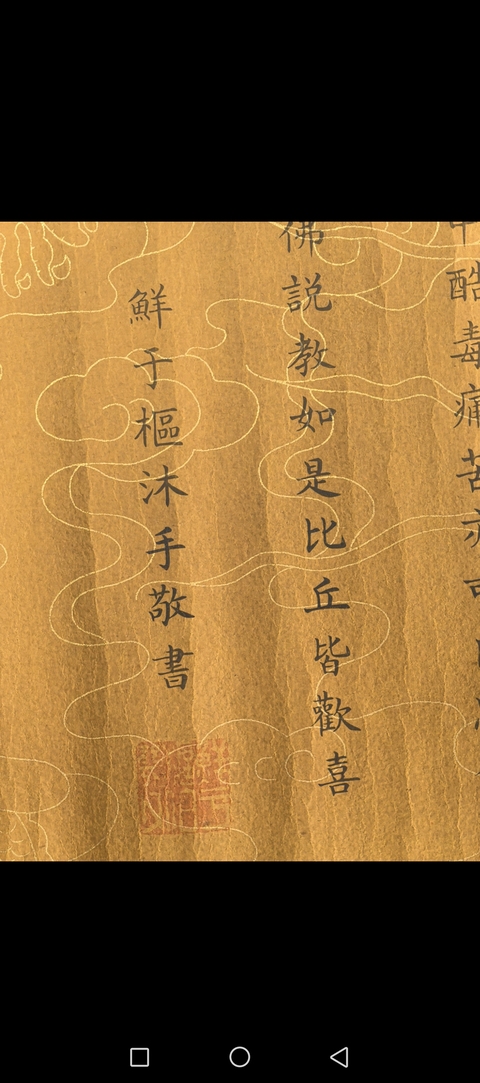 酷毒痛苦亦可
佛說教如是比丘皆歡喜
鮮于樞沐手敬書